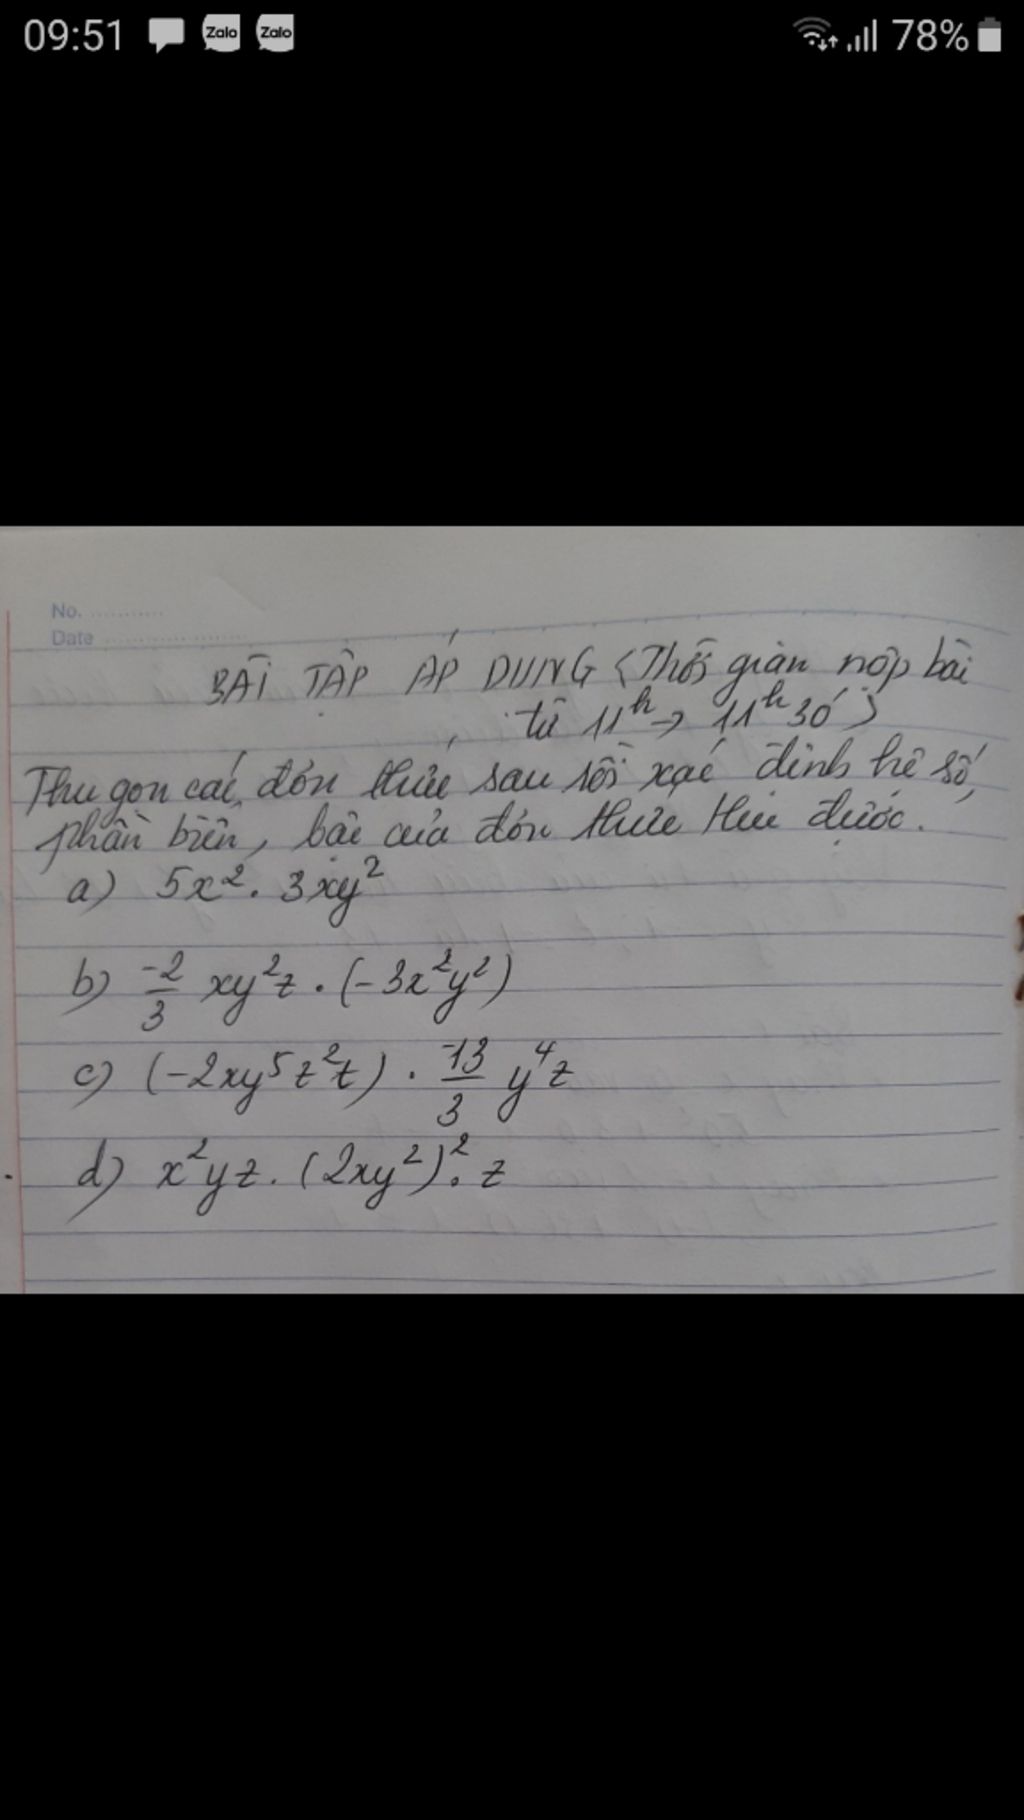 09:51 Zalo Zalo 78%
No. ...........
Date ......................
BÀI TẬP ÁP DỤNG (Thời gian nộp bài
từ 11h → 11h30')
Thu gọn các đơn thức sau rồi xác định hệ số,
phần biến, bậc của đơn thức thu được.
a) 5x². 3xy²
b) -2/3 xy²z . (-3x²y²)
c) (-2xy⁵z²t) . -13/3 y⁴z
d) x²yz. (2xy²)². z